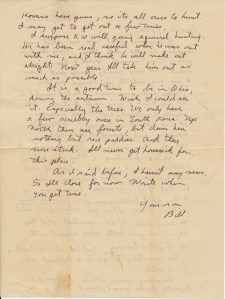 Koreans have guns, so its all ours to hunt.
I may get to get out a few times
I suppose K.W. will going squirrel hunting.
He has been real careful when he was out
with me, and I think he will make out
alright. Next year I'll take him out as
much as possible.
It is a good time to be in Ohio,
during the autumn. Wish I could see
it. Especially the trees. We only have
a few scrubby ones in South Korea. Up
North there are forests, but down here
nothing but rice paddies. And they
sure stink. I'll never get homesick for
this place.
As I said before, I haven't any news.
So I'll close for now. Write when
you get time.
Yours
Bill